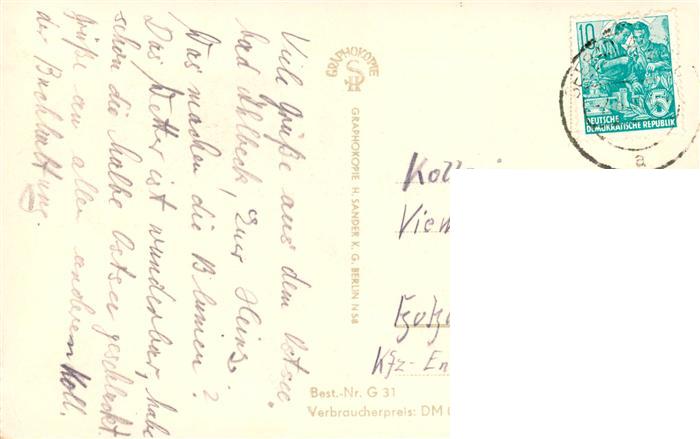 Viele Grüße aus dem Ostsee
bad Ahlbeck, Euer Heinz.
Was machen die Blumen?
Das Wetter ist wunderbar, habe
schon die halbe Ostsee geschluckt.
Grüße an allen anderen Koll.
der Buchhaltung.
GRAPHOKOPIE
GRAPHOKOPIE H. SANDER K. G. BERLIN N 58
10
5
DEUTSCHE
DEMOKRATISCHE REPUBLIK
a
Koll
Viem
Kfz-En
Best.-Nr. G 31
Verbraucherpreis: DM